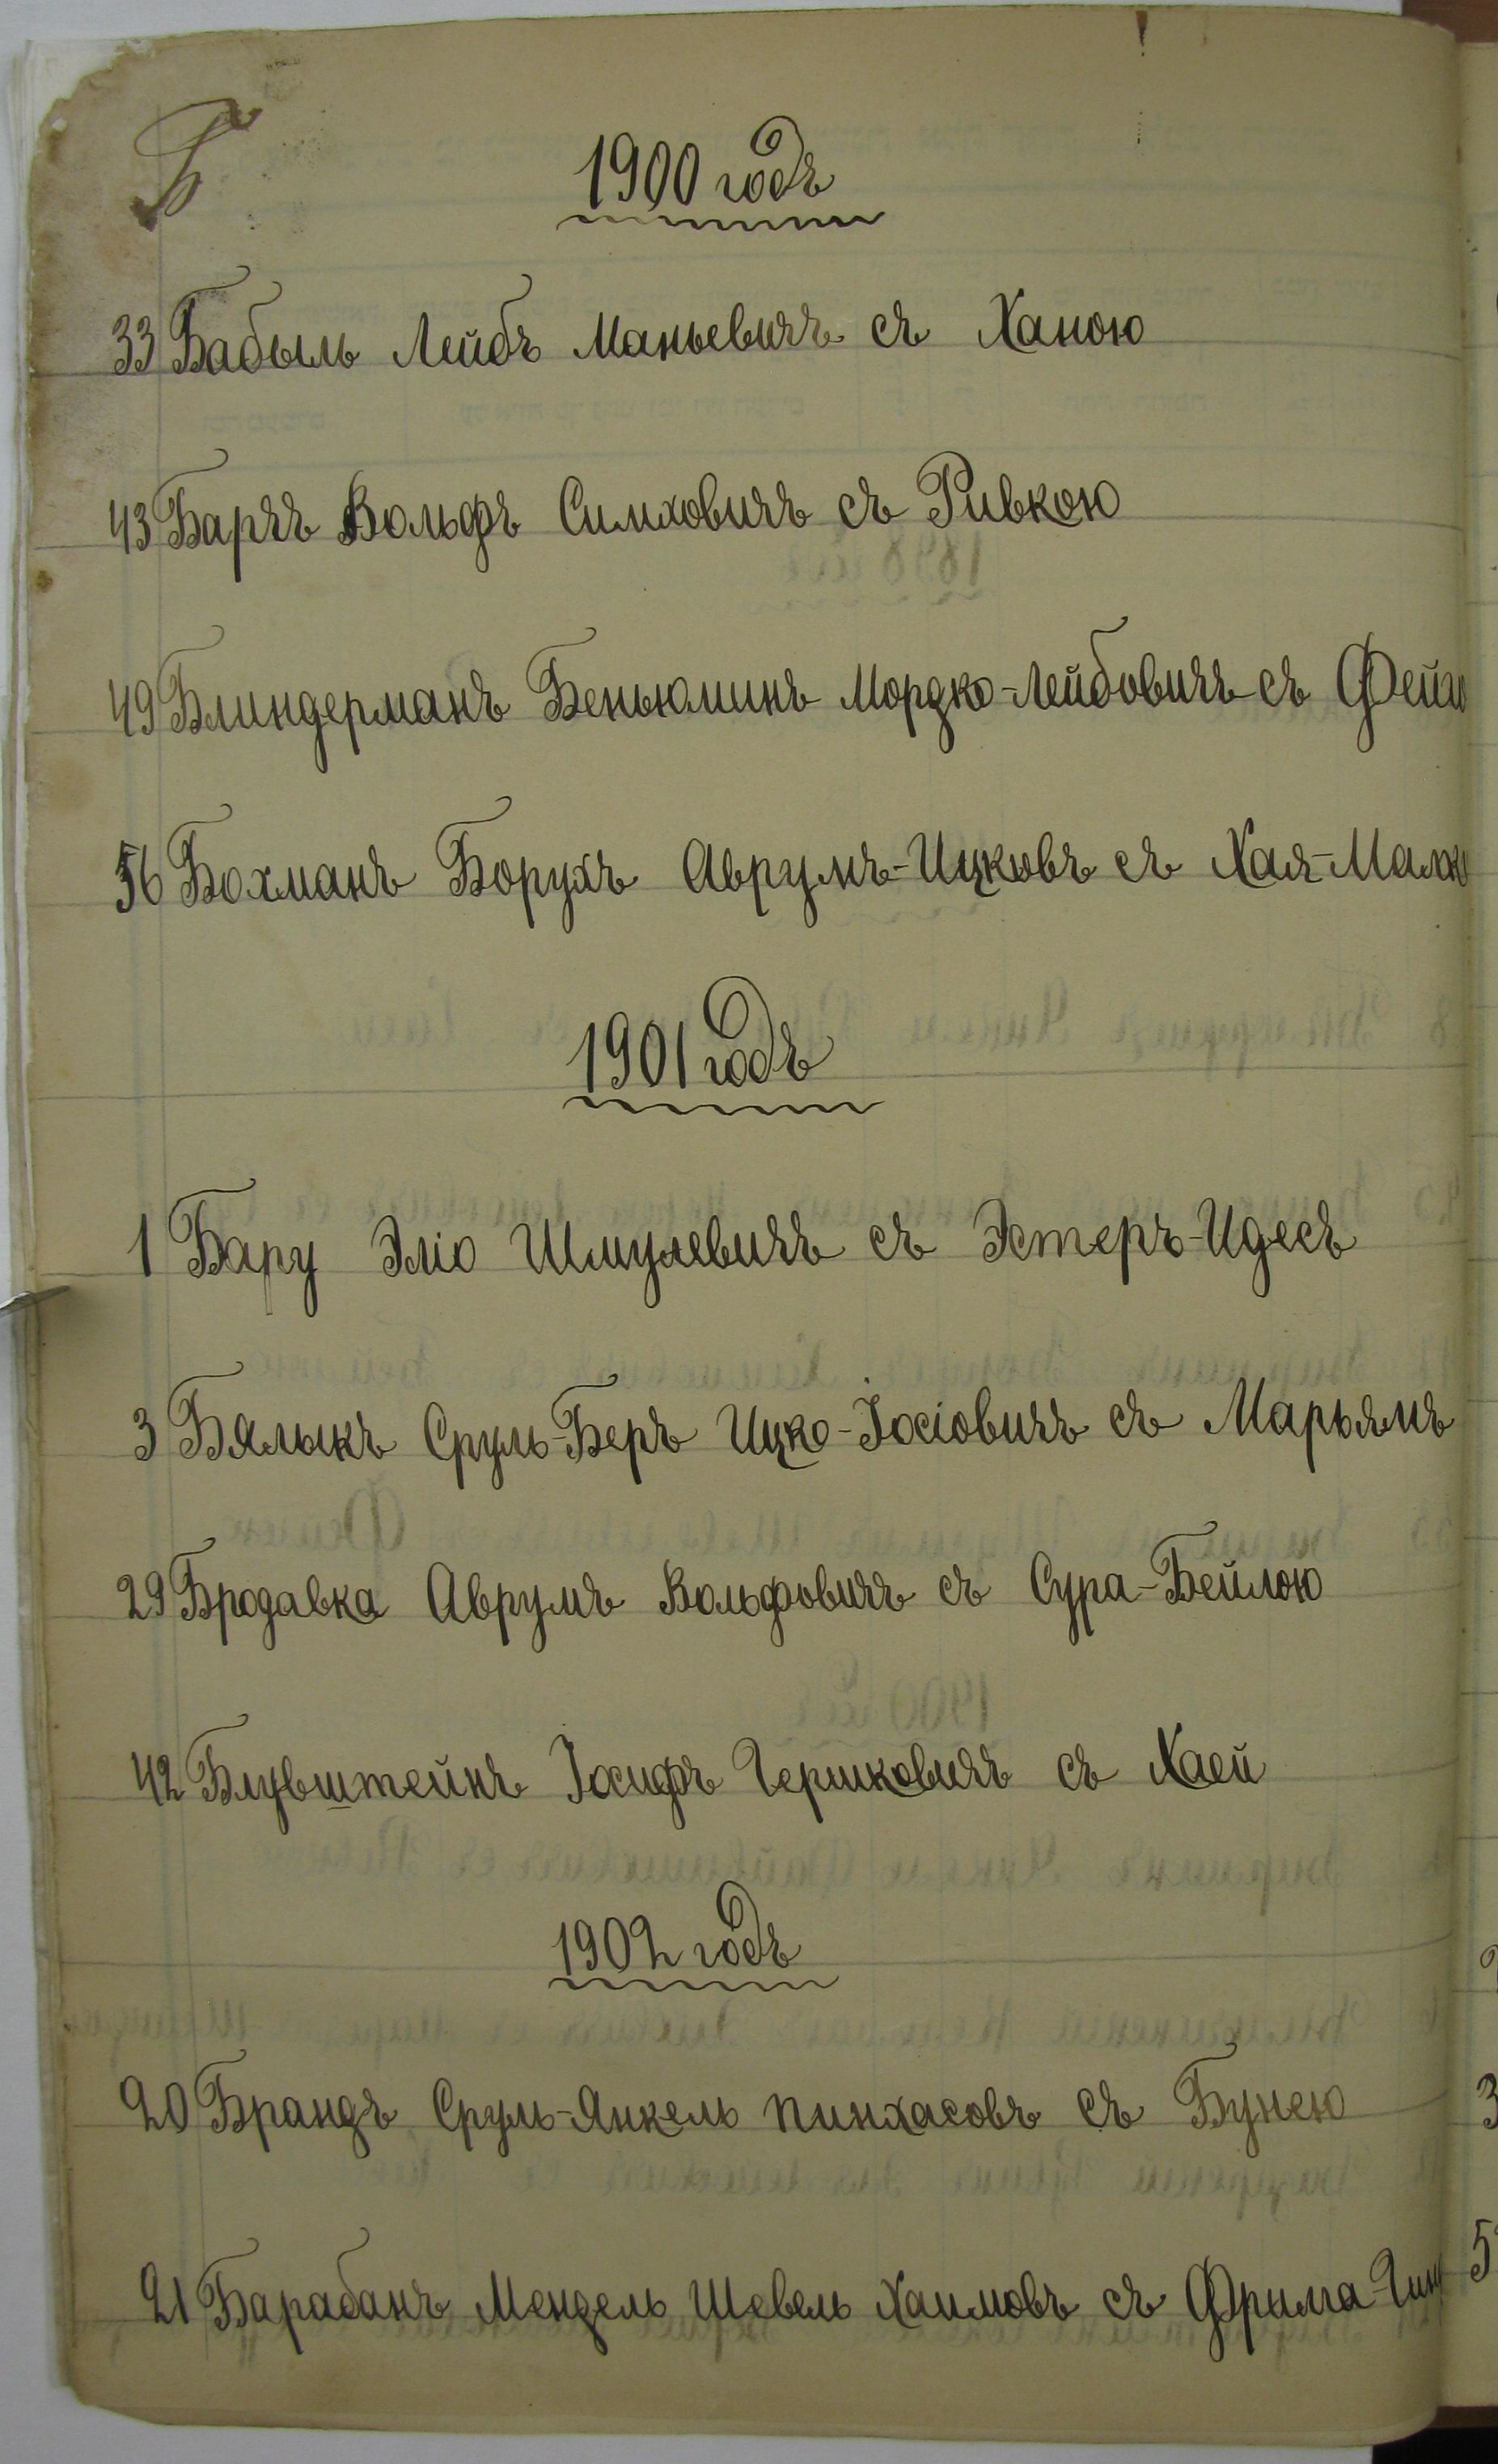 Б
1900 годъ
33 Бабыль Лейбъ Маньевичъ съ Ханою
43 Барчъ Вольфъ Симховичъ съ Ривкою
49 Блиндерманъ Беньюминъ Мордко-Лейбовичъ съ
56 Бохманъ Борухъ Аврумъ-Ицковъ съ Хая-
1901 годъ
1 Бару Эліо Шмулевичъ съ Эстеръ-Идесъ
3 Бялыкъ Сруль-Беръ Ицко-Іосіовичъ съ Марьямъ
29 Бродавка Аврумъ Вольфовичъ съ Сура-Бейлою
42 Блувштейнъ Іосифъ Гершковичъ съ Хаей
1902 годъ
20 Брандъ Сруль-Янкель Пинхасовъ съ Бунею
21 Барабанъ Мендель Шевель Хаимовъ съ Фрима-